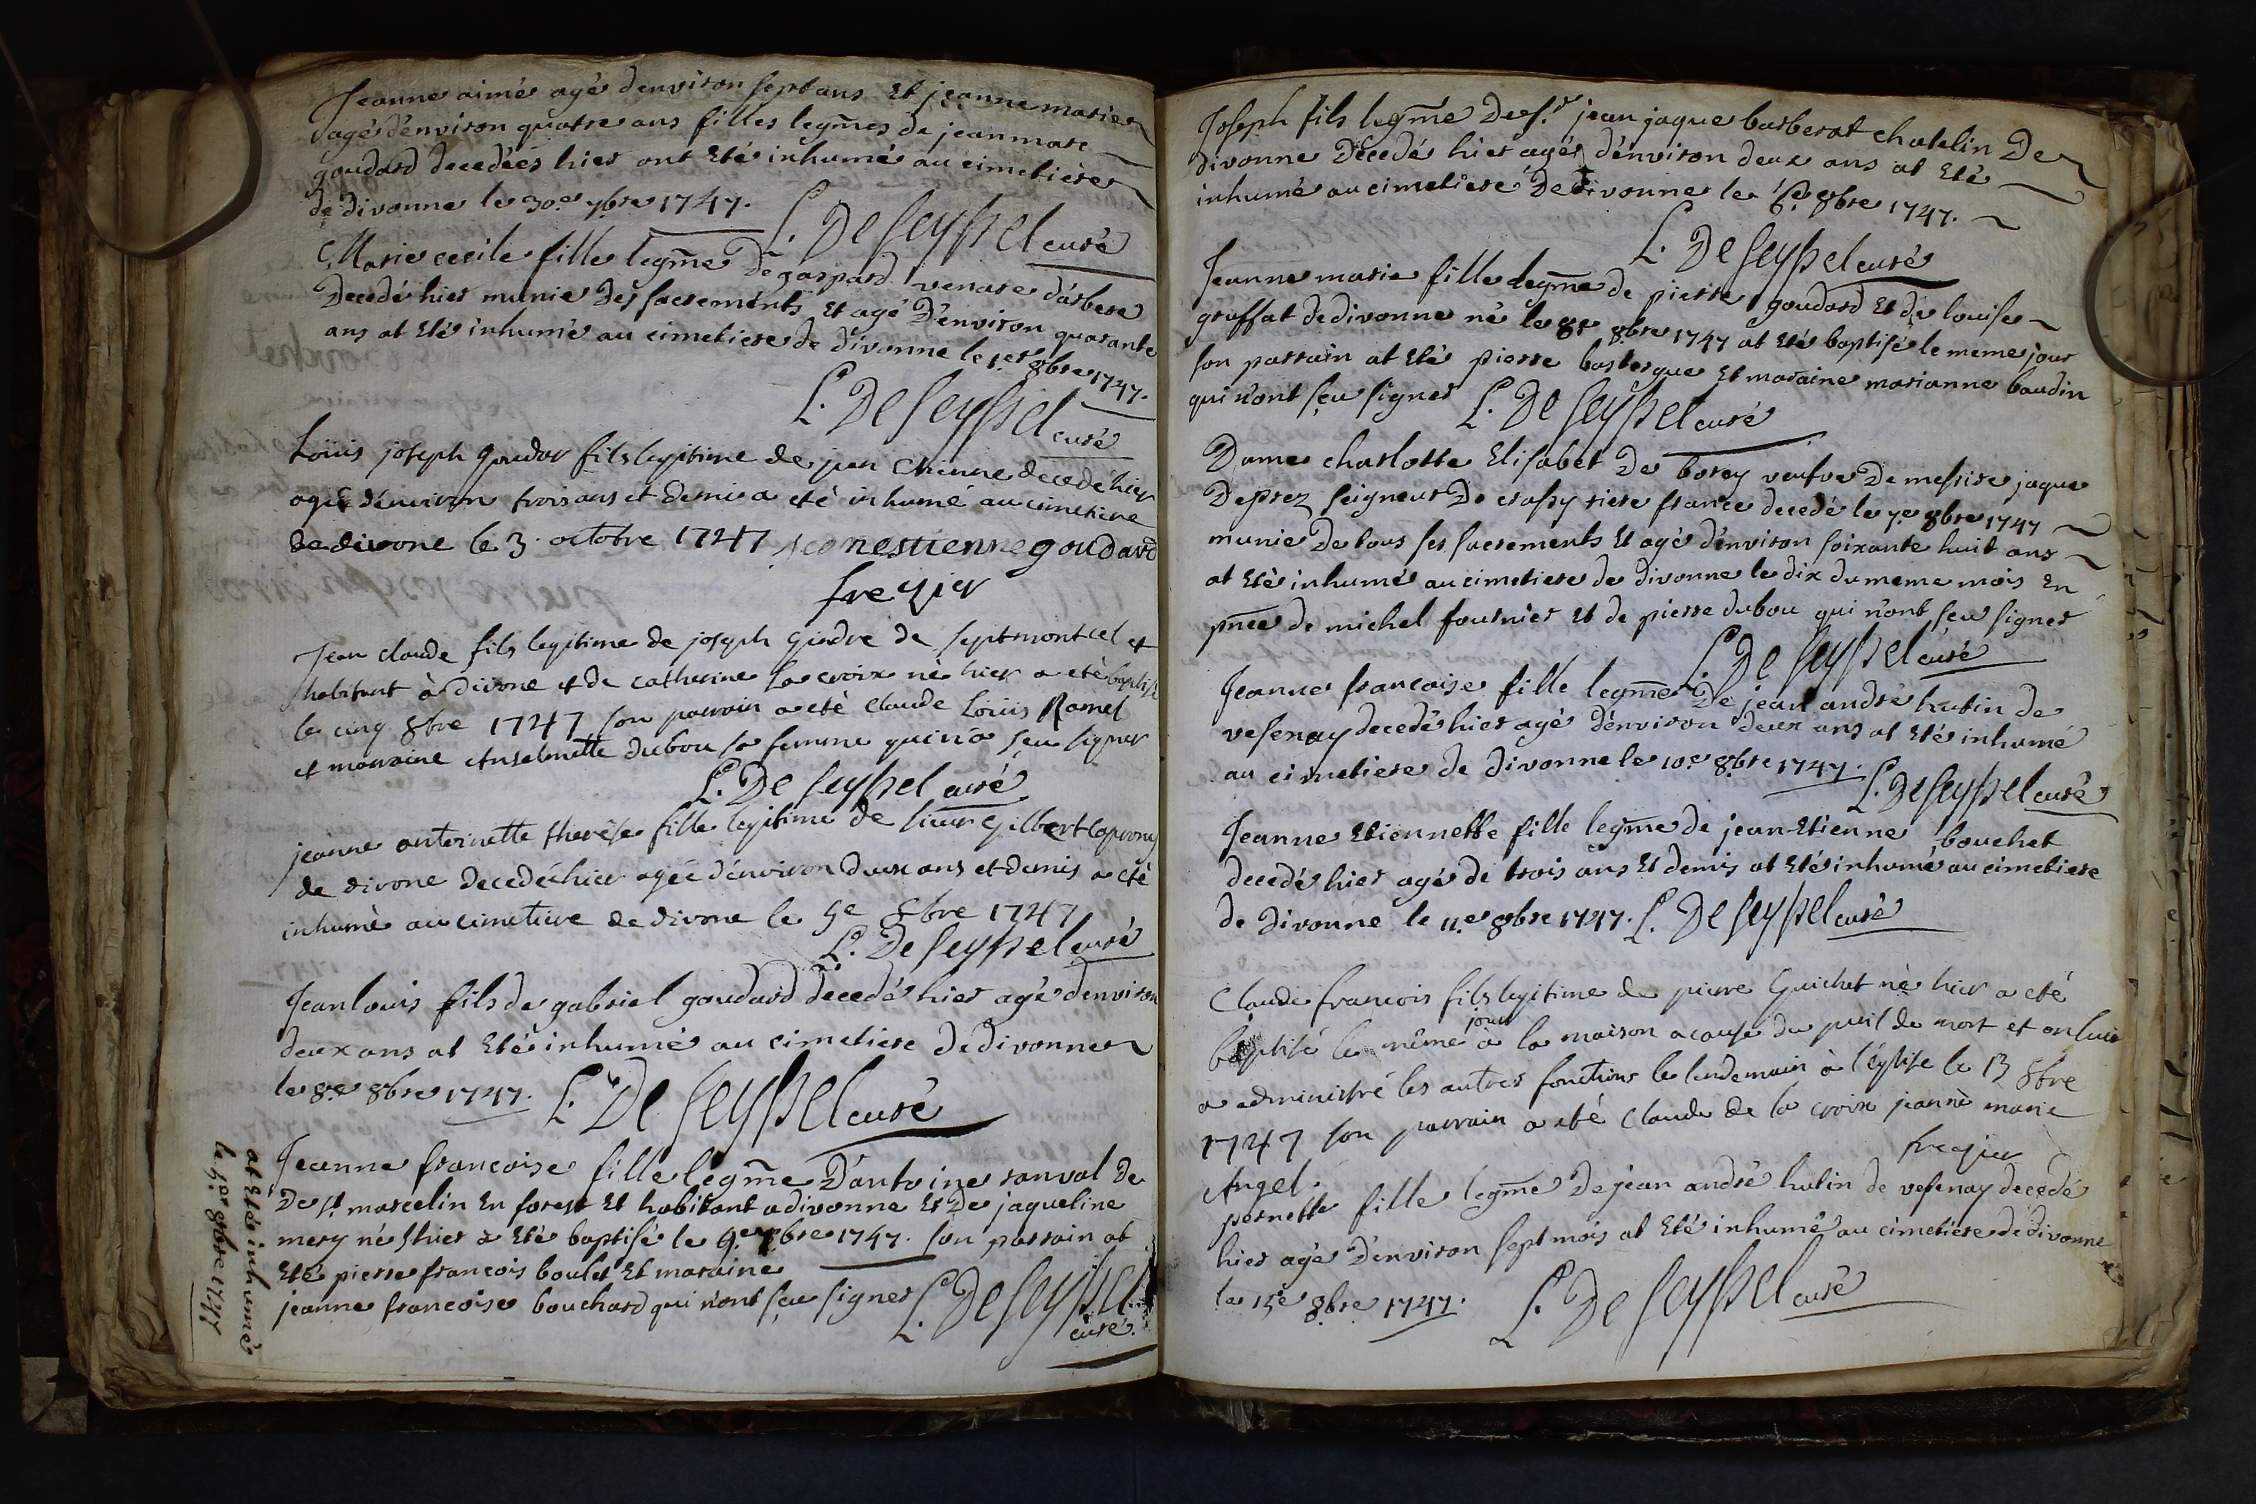 Jeanne aimé agé d'environ sept ans Et jeanne marie
agé d'environ quatre ans filles legmes de jean marc
goudard decedées hier ont Eté inhumé au cimetiere
de divonne le 30e 7bre 1747.
L. De Seyssel curé
Marie cecile fille legme De gaspard venare d'arbere
Decedé hier munie Des sacrements Et agé D'environ quarante
ans at Eté inhumé au cimetiere de divonne le 1er 8bre 1747.
L. De Seyssel curé
Loüis joseph goudar fils legitime de jean etienne decedé hier
agé d'environ trois ans et demi a eté inhumé au cimetiere
de divone le 3. octobre 1747 jeanestienne goudard
frezier
Jean claude fils legitime de joseph gindre de septmontcel et
habitant à divone et de catherine la croix né hier a eté baptisé
le cinq 8bre 1747 son parrain a eté claude Loüis Ramel
et marraine Anselmette dubou sa femme qui n'a sçeu signer
L. De Seyssel curé
jeanne antoinette therése fille legitime de sieur gilbert
de divone decedée hier agée d'environ deux ans et demis a eté
inhumé au cimetiere de divone le 5e 8bre 1747
L. De Seyssel curé
Jean louis fils de gabriel goudard decedé hier agé d'environ
deux ans at Eté inhumé au cimetiere de divonne
le 8e 8bre 1747. L. De Seyssel curé
Jeanne francoise fille legme D'antoine ranval de
De st marcelin En forest Et habitant a divonne Et De jaqueline
mery né hier a Eté baptisé le 9e 8bre 1747. son parrain at
Eté pierre francois boulet Et maraine
jeanne francoise bouchard qui n'ont sçeu signer L. De Seyssel
curé.
at Eté inhumé
le 8bre 1747
Joseph fils legme De sr jean jaque barberat chatelin De
divonne Decedé hier agé d'environ deux ans at Eté
inhumé au cimetiere De divonne le 6e 8bre 1747.
L. De Seyssel curé
Jeanne marie fille legme de pierre goudard Et de louise
gruffat de divonne né le 8e 8bre 1747 at Eté baptisé le meme jour
son parrain at Eté pierre bastergue Et maraine marianne baudin
qui n'ont sçeu signer L. De Seyssel curé
Dame charlotte Elisabet De borey veufve De messire jaque
Deprez seigneur De crassy riere france decedé le 7e 8bre 1747
munie De tous ses sacrements Et agé d'environ soixante huit ans
at Eté inhumé au cimetiere de divonne le dix du meme mois En
pnce de michel fournier Et de pierre dubou qui n'ont sçeu signer
L. De Seyssel curé
Jeanne francoise fille legme De jean andré hutin de
vesenay decedé hier agé d'environ deux ans at Eté inhumé
au cimetiere de divonne le 10e 8bre 1747. L. De Seyssel curé
Jeanne Etiennette fille legme de jean-Etienne bouchet
decedé hier agé de trois ans Et demis at Eté inhumé au cimetiere
de divonne le 11e 8bre 1747. L. De Seyssel curé
Claude francois fils legitime de pierre Guichet né hier a eté
baptisé le même jour à la maison a cause du peril de mort et on luis
a administré les autres fonctions le lendemain à l'église le 13 8bre
1747 son parrain a eté claude de la croix jeanne marie
Angel.
frezier
pernette fille legme De jean andré hutin de vesenay decedé
hier agé d'environ sept mois at Eté inhumé au cimetiere de divonne
le 15e 8bre 1747. L. De Seyssel curé